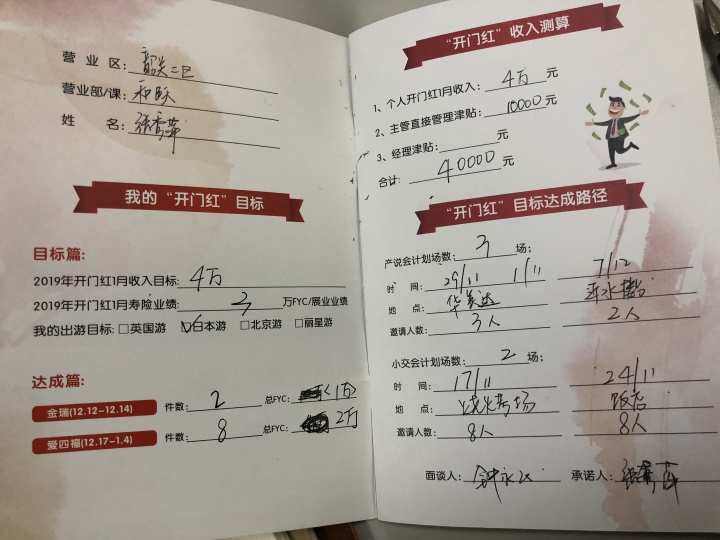 营 业 区：韶关二区
营业部/课：和跃
姓 名：张秀萍
我的“开门红”目标
目标篇：
2019年开门红1月收入目标：4万
2019年开门红1月寿险业绩：3 万FYC/展业业绩
我的出游目标：□英国游 ☑日本游 □北京游 □丽星游
达成篇：
金瑞(12.12-12.14) 件数：2 总FYC：(1万)
爱四福(12.17-1.4) 件数：8 总FYC：2万
“开门红”收入测算
1、个人开门红1月收入：4万元
2、主管直接管理津贴：10000元
3、经理津贴：元
合计：40000元
“开门红”目标达成路径
产说会计划场数：3 场；
时 间：29/11 1/11 7/12
地 点：华美达
邀请人数：3人 2人
小交会计划场数：2 场；
时 间：17/11 24/11
地 点：饭店
邀请人数：8人 8人
面谈人：钟永 承诺人：张秀萍